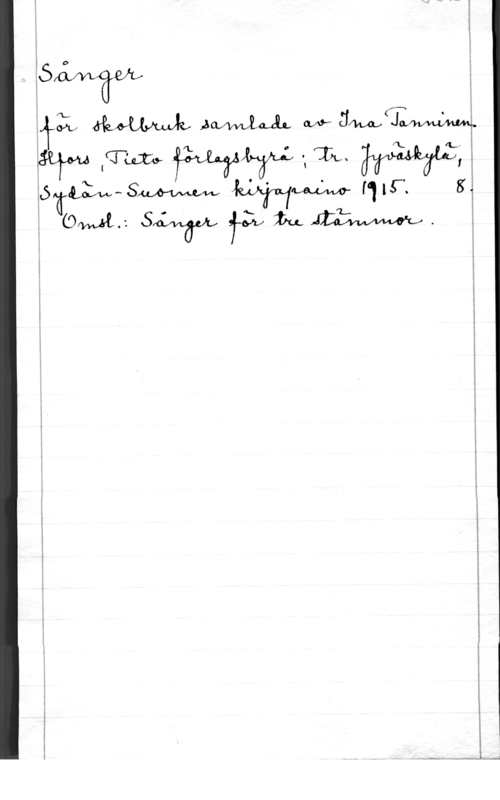 Sånger
för skolbruk samlade av Ina Tanninen.
Hfors, Tieto förlagsbyrå; tr. Jyväskylä,
Sydän-Suomen kirjapaino 1915. 8.
Omsl.: Sånger för tre stämmor.